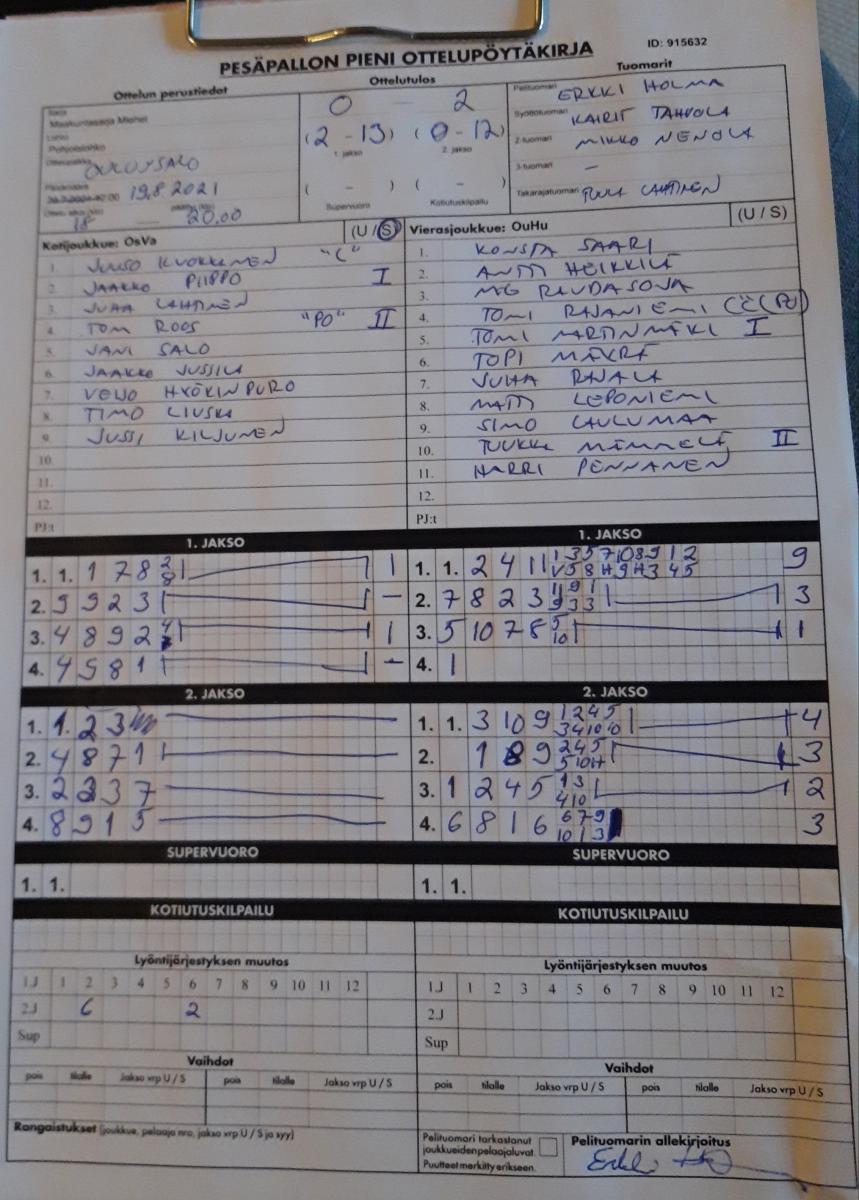 PESÄPALLON PIENI OTTELUPÖYTÄKIRJA
ID: 915632
Ottelun perustiedot
Ottelutulos
Tuomarit
Sarja
Maakuntasarja Miehet
Lohko
Pohjoislohko
Ottelupaikka
OULUNSALO
19.8 2021
18 20.00
0 2
(2 - 13) (0 - 12)
1. jakso 2. jakso
( - ) ( - )
Supervuoro Kotiutuskilpailu
Pelituomari ERKKI HOLMA
Syöttötuomari KAIRIT TAHVOLA
2-tuomari MIKKO NENOLA
3-tuomari –
Takarajatuomari TUULA LAHTINEN
Kotijoukkue: OsVa (U / S)
1. JUUSO KUOKKANEN "C"
2. JAAKKO PIIPPO I
3. JUHA LAHTINEN
4. TOM ROOS "PO" II
5. JANI SALO
6. JAAKKO JUSSILA
7. VEIJO HYÖKINPURO
8. TIMO LIUSKA
9. JUSSI KILJUNEN
10.
11.
12.
PJ:t
Vierasjoukkue: OuHu (U / S)
1. KONSTA SAARI
2. ANTTI HEIKKILÄ
3. MG RAUDASOJA
4. TOMI RAJANIEMI
5. TOMI MARTINMÄKI I
6. TOPI MÄKRÄ
7. JUHA RAJALA
8. MATTI LEPONIEMI
9. SIMO LAULUMAA
10. TUUKKA MÄMMELÄ II
11. HARRI PENNANEN
12.
PJ:t
1. JAKSO
1. 1. 1 7 8 2 8 1
2. 9 9 2 3 1 –
3. 4 8 9 2 4 1
4. 4 5 8 1 –
1. JAKSO
1. 1. 2 4 11 1 3 5 7 10 8 9 1 2 9
V 5 8 H 9 H 3 4 5
2. 7 8 2 3 11 9 1 3
9 3 3
3. 5 10 7 8 5 1
10
4. 1
2. JAKSO
1. 1. 2 3
2. 4 8 7 1
3. 2 2 3 7
4. 8 9 1 5
2. JAKSO
1. 1. 3 10 9 1 2 4 5 4
3 4 10 10
2. 1 8 9 2 4 5 3
5 10 H
3. 1 2 4 5 1 3 2
4 10
4. 6 8 1 6 6 7 9 3
10 1 3
SUPERVUORO
1. 1.
SUPERVUORO
1. 1.
KOTIUTUSKILPAILU
KOTIUTUSKILPAILU
Lyöntijärjestyksen muutos
1.J 1 2 3 4 5 6 7 8 9 10 11 12
2.J 6 2
Sup
Lyöntijärjestyksen muutos
1.J 1 2 3 4 5 6 7 8 9 10 11 12
2.J
Sup
Vaihdot
pois tilalle Jakso vrp U / S pois tilalle Jakso vrp U / S
Vaihdot
pois tilalle Jakso vrp U / S pois tilalle Jakso vrp U / S
Rangaistukset (joukkue, pelaaja nro, jakso vrp U / S ja syy)
Pelituomari tarkastanut
joukkueiden pelaajaluvat.
Puutteet merkitty erikseen.
Pelituomarin allekirjoitus